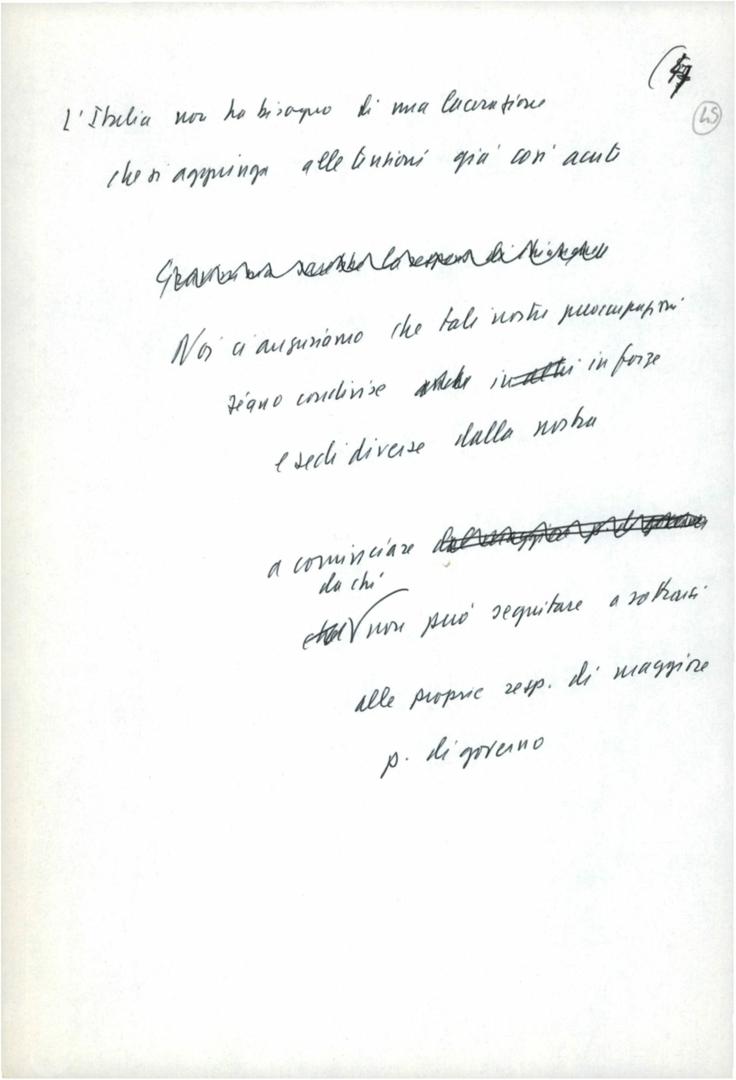 L'Italia non ha bisogno di una lacerazione
che si aggiunga alle tensioni già così acute
Noi ci auguriamo che tali nostre preoccupazioni
siano condivise anche in altri in forze
e sedi diverse dalla nostra
a cominciare dal maggior p. di governo
da chi
non può seguitare a sottrarsi
alle proprie resp. di maggiore
p. di governo